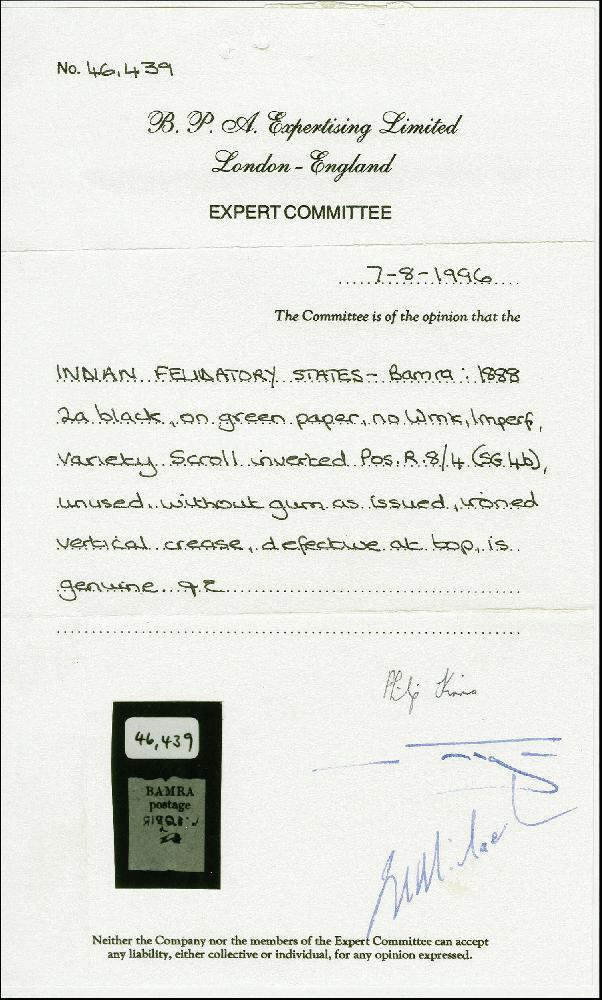 No. 46,439
B. P. A. Expertising Limited
London - England
EXPERT COMMITTEE
7-8-1996
The Committee is of the opinion that the
INDIAN FEUDATORY STATES - Bamra : 1888
2a black, on green paper, no Wmk, Imperf,
variety Scroll inverted Pos. R.8/4 (SG 4b),
unused, without gum as issued, ironed
vertical crease, defective at top, is
genuine
46,439
BAMRA
postage
Neither the Company nor the members of the Expert Committee can accept
any liability, either collective or individual, for any opinion expressed.